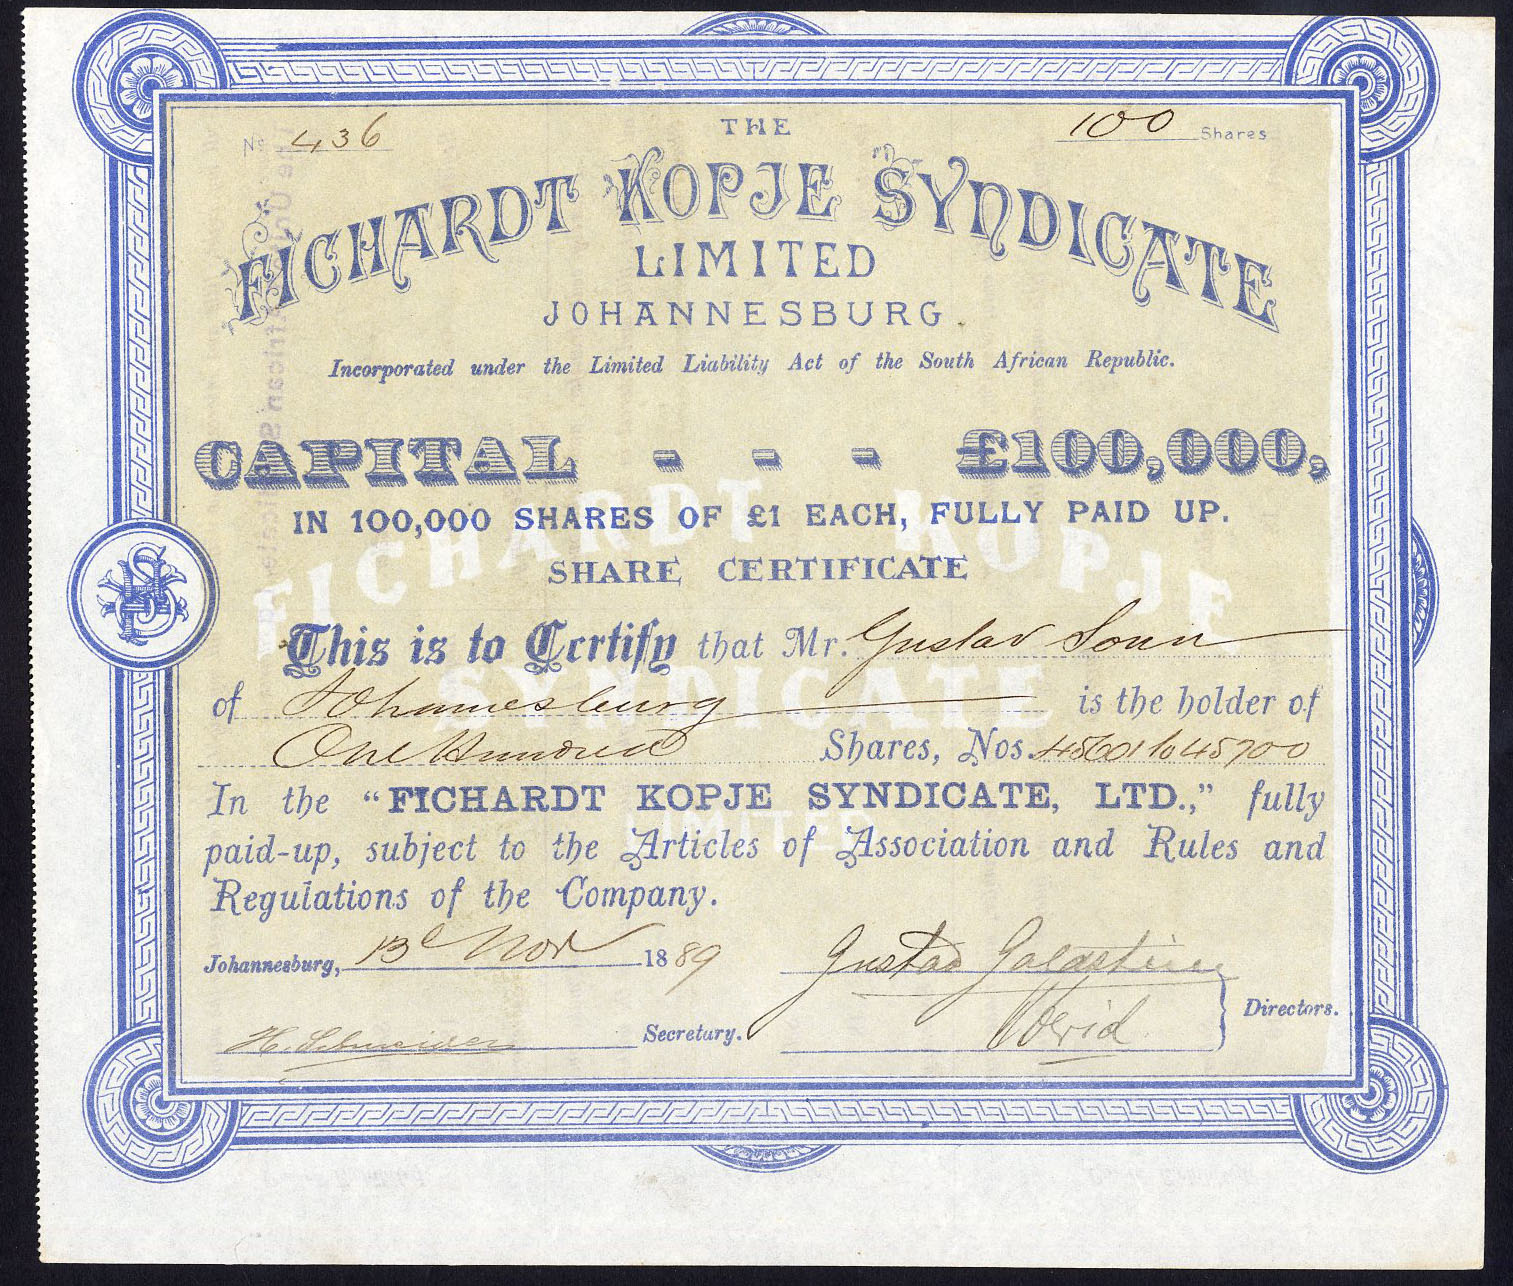 No 436
100 Shares
THE
FICHARDT KOPJE SYNDICATE
LIMITED
JOHANNESBURG
Incorporated under the Limited Liability Act of the South African Republic.
CAPITAL - - - £100,000,
IN 100,000 SHARES OF £1 EACH, FULLY PAID UP.
SHARE CERTIFICATE
This is to Certify that Mr. Gustav Sonn
of Johannesburg is the holder of
One Hundred Shares, Nos. 45601 to 45700
In the “FICHARDT KOPJE SYNDICATE, LTD.,” fully
paid-up, subject to the Articles of Association and Rules and
Regulations of the Company.
Johannesburg, 13 Nov 1889
Gustav Goldstein
Directors.
H. Schneider Secretary.
FICHARDT KOPJE
SYNDICATE
LIMITED